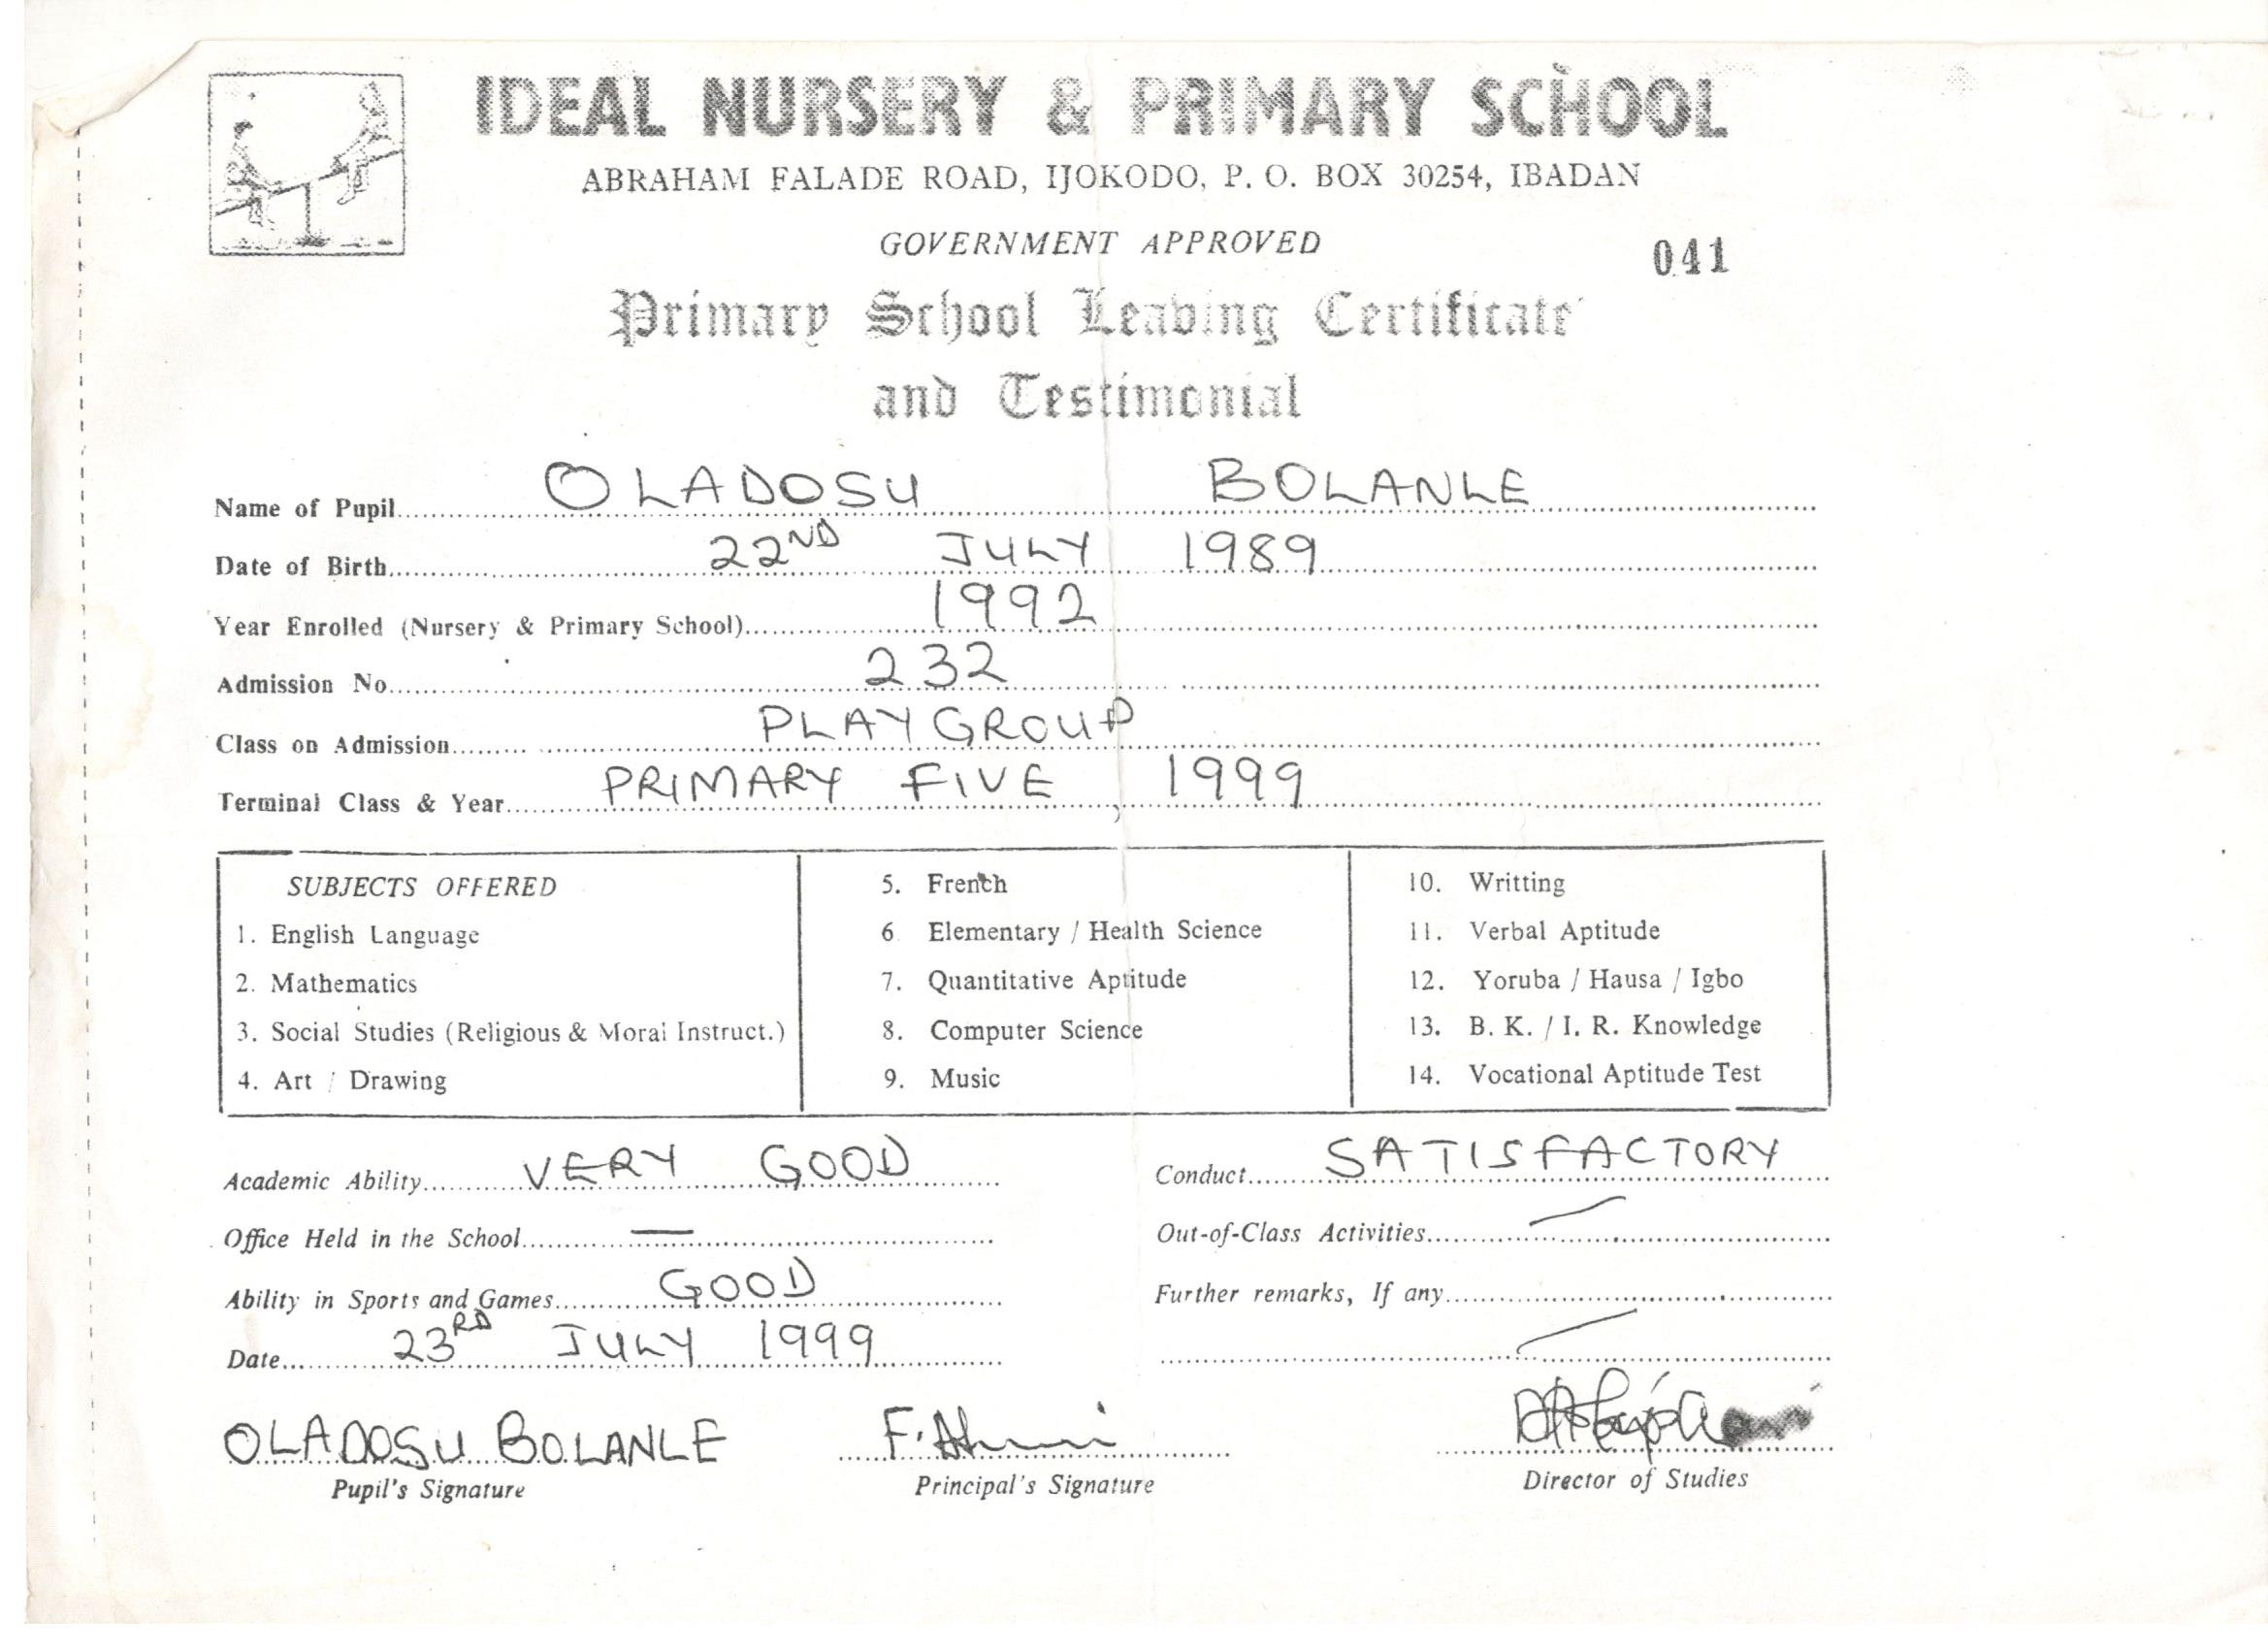 IDEAL NURSERY & PRIMARY SCHOOL
ABRAHAM FALADE ROAD, IJOKODO, P. O. BOX 30254, IBADAN
GOVERNMENT APPROVED
041
Primary School Leaving Certificate
and Testimonial
Name of Pupil OLADOSU BOLANLE
Date of Birth 22ND JULY 1989
Year Enrolled (Nursery & Primary School) 1992
Admission No 232
Class on Admission PLAYGROUP
Terminal Class & Year PRIMARY FIVE, 1999
SUBJECTS OFFERED
1. English Language
2. Mathematics
3. Social Studies (Religious & Moral Instruct.)
4. Art / Drawing
5. French
6 Elementary / Health Science
7. Quantitative Aptitude
8. Computer Science
9. Music
10. Writting
11. Verbal Aptitude
12. Yoruba / Hausa / Igbo
13. B. K. / I. R. Knowledge
14. Vocational Aptitude Test
Academic Ability VERY GOOD
Conduct SATISFACTORY
Office Held in the School —
Out-of-Class Activities
Ability in Sports and Games GOOD
Further remarks, If any
Date 23RD JULY 1999
OLADOSU BOLANLE
Pupil's Signature
Principal's Signature
Director of Studies